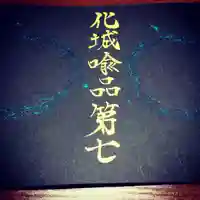 化城喩品第七